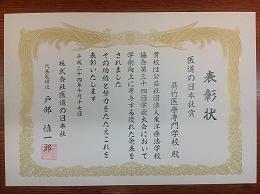 表彰状
医道の日本社賞
呉竹医療専門学校 殿
貴校は公益社団法人東洋療法学校
協会第三十四回学術大会において
学術向上に寄与する優れた発表を
されました
その功績と努力をたたえこれを
表彰いたします
平成二十四年十月十七日
株式会社医道の日本社
代表取締役 戸部慎一郎